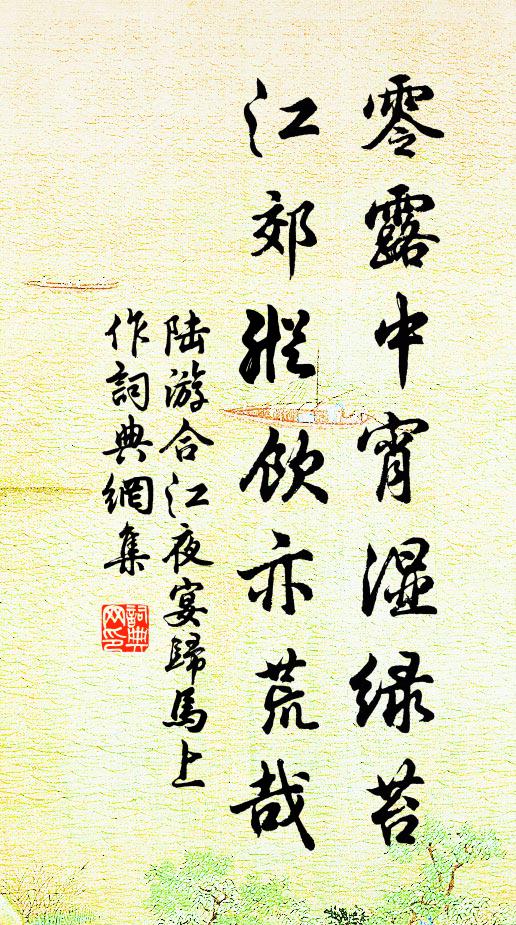 零露中宵湿绿苔
江郊縱飲亦荒哉
陆游合江夜宴歸馬上
作詞典網集
詞典
网印